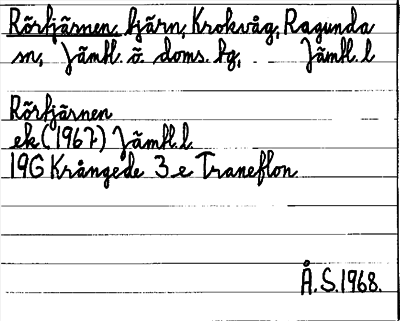 Rörtjärnen, tjärn, Krokvåg, Ragunda
sn, Jämtl. ö. doms. tg, Jämtl. l
Rörtjärnen
ek (1967) Jämtl. l
19G Krångede 3 e Traneflon
Å.S. 1968.